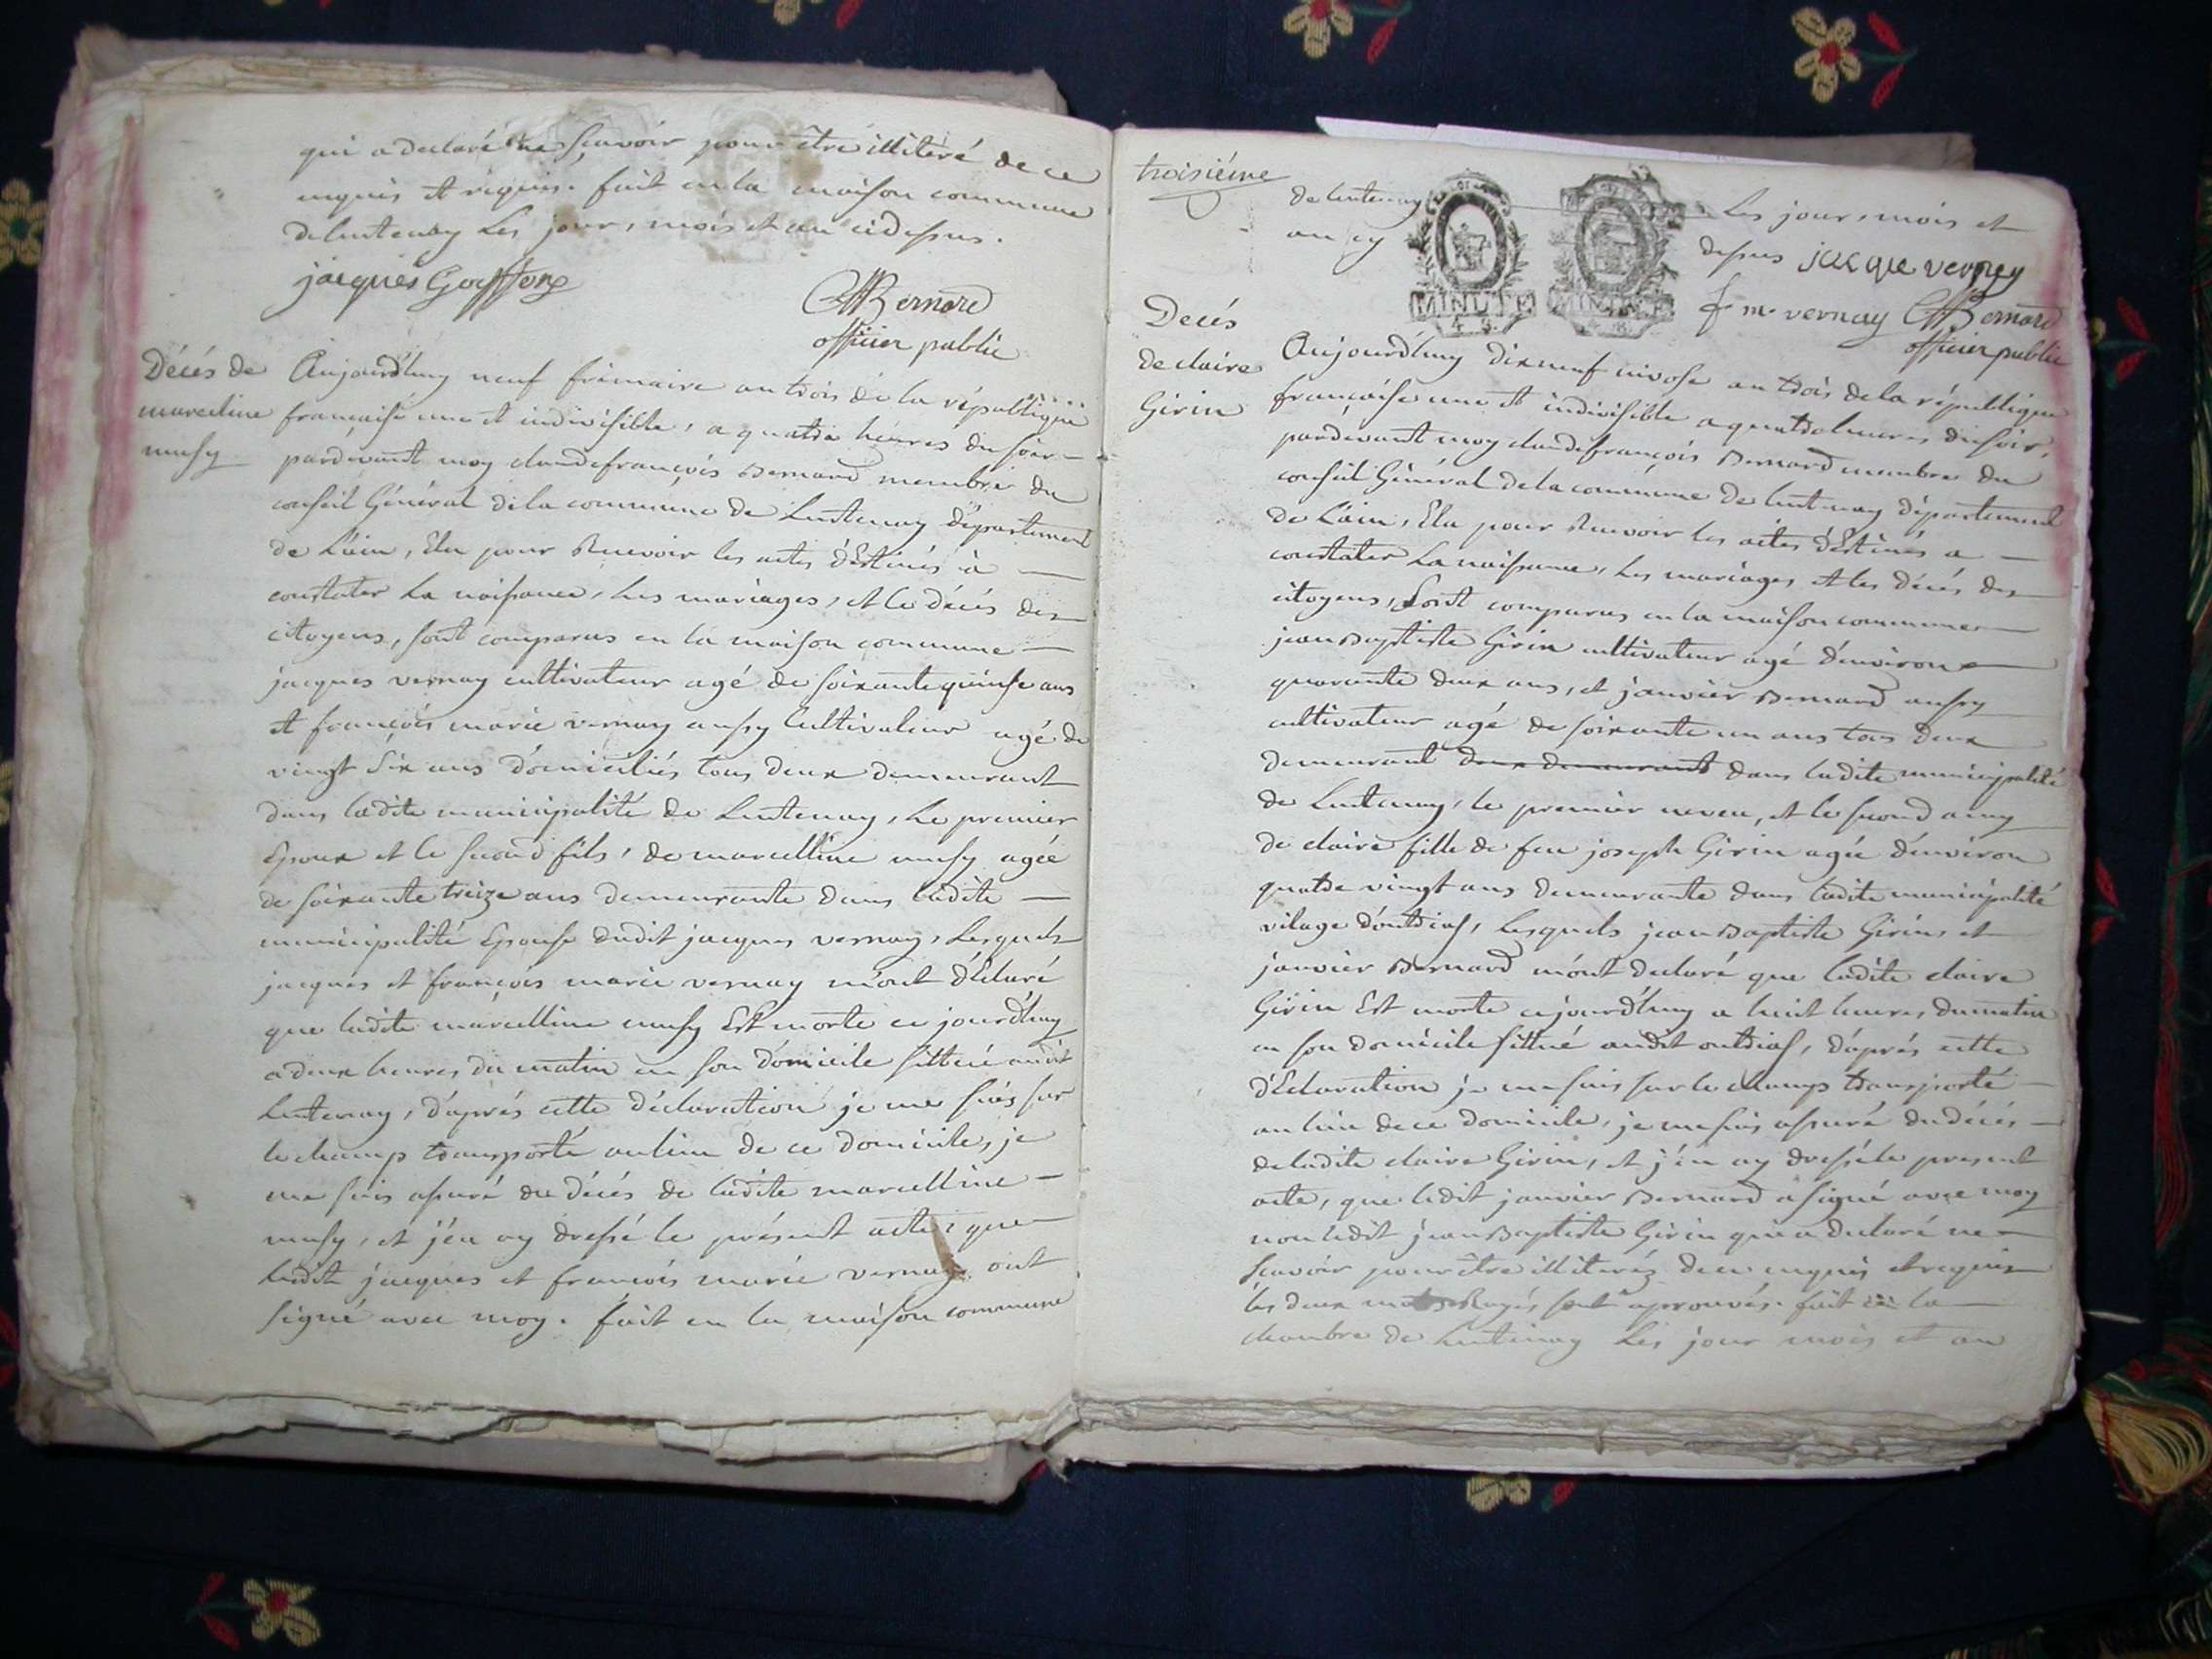 qui a declaré ne sçavoir pour être illiteré de ce
enquis et requis. fait en la maison commune
de lentenay Les jour, mois et an cidessus.
jacques Goyffon
CfBernard
officier public
Décés de
marceline
musy
Aujourd'huy neuf frimaire an trois de la république
française une et indivisible, a quatre heures du soir
pardevant moy claudefrançois Bernard membre du
conseil Général de la commune de Lentenay département
de L'ain, Elu pour Recevoir les actes déstinés à
constater La naissance, Les mariages, et le décés des
citoyens, sont comparus en la maison commune
jacques vernay cultivateur agé de soixante quinse ans
et françois marie vernay aussy Cultivateur agé de
vingt six ans domiciliés tous deux demeurant
dans ladite municipalité de Lentenay, Le premier
Epoux et le second fils, de marcelline musy agée
de soixante treize ans demeurante dans ladite
municipalité Epouse dudit jacques vernay, Lesquels
jacques et françois marie vernay m'ont déclaré
que ladite marcelline musy Est morte ce jourd'huy
a deux heures du matin en son domicile sittué audit
Lentenay, d'aprés cette déclaration je me suis sur
le champ transporté au lieu de ce domicile, je
me suis assuré du décés de ladite marcelline
musy, et j'en ay dressé le présent acte, que
ledit jacques et francois marie vernay ont
signé avec moy. fait en la maison commune
troisiéme
de lentenay Les jour, mois et
an cy dessus jacque verney
MINUTE MINUTE
f m. vernay CfBernard
officier public
Decés
de claire
Girin
Aujourd'huy dixneuf nivose an trois de la république
française une et indivisible a quatre heures du soir,
pardevant moy claudefrançois Bernard membre du
conseil Général de la commune de lentenay département
de L'ain, Elu pour Recevoir les actes déstinés a
constater La naissance, Les mariages et les décés des
citoyens, Sont comparus en la maison commune
jean Baptiste Girin cultivateur agé d'environ
quarante deux ans, et janvier Bernard aussy
cultivateur agé de soixante un ans tous deux
demeurant deux demeurant dans ladite municipalité
de Lentenay, le premier neveu, et le second amy
de claire fille de feu joseph Girin agée d'environ
quatre vingt ans demeurante dans ladite municipalité
vilage d'outrias, Lesquels jean Baptiste Girin et
janvier Bernard m'ont declaré que ladite claire
Girin Est morte cejourd'huy a huit heures du matin
en son domicile sittué audit outrias, d'aprés cette
déclaration je me suis sur le champ transporté
au lieu de ce domicile, je me suis assuré du décés
de ladite claire Girin, et j'en ay dressé le present
acte, que ledit janvier Bernard a signé avec moy
non ledit jean Baptiste Girin qui a declaré ne
sçavoir pour être illiteré de ce enquis et requis
les deux mots Rayés sont aprouvés. fait en la
chambre de Lentenay Les jour mois et an